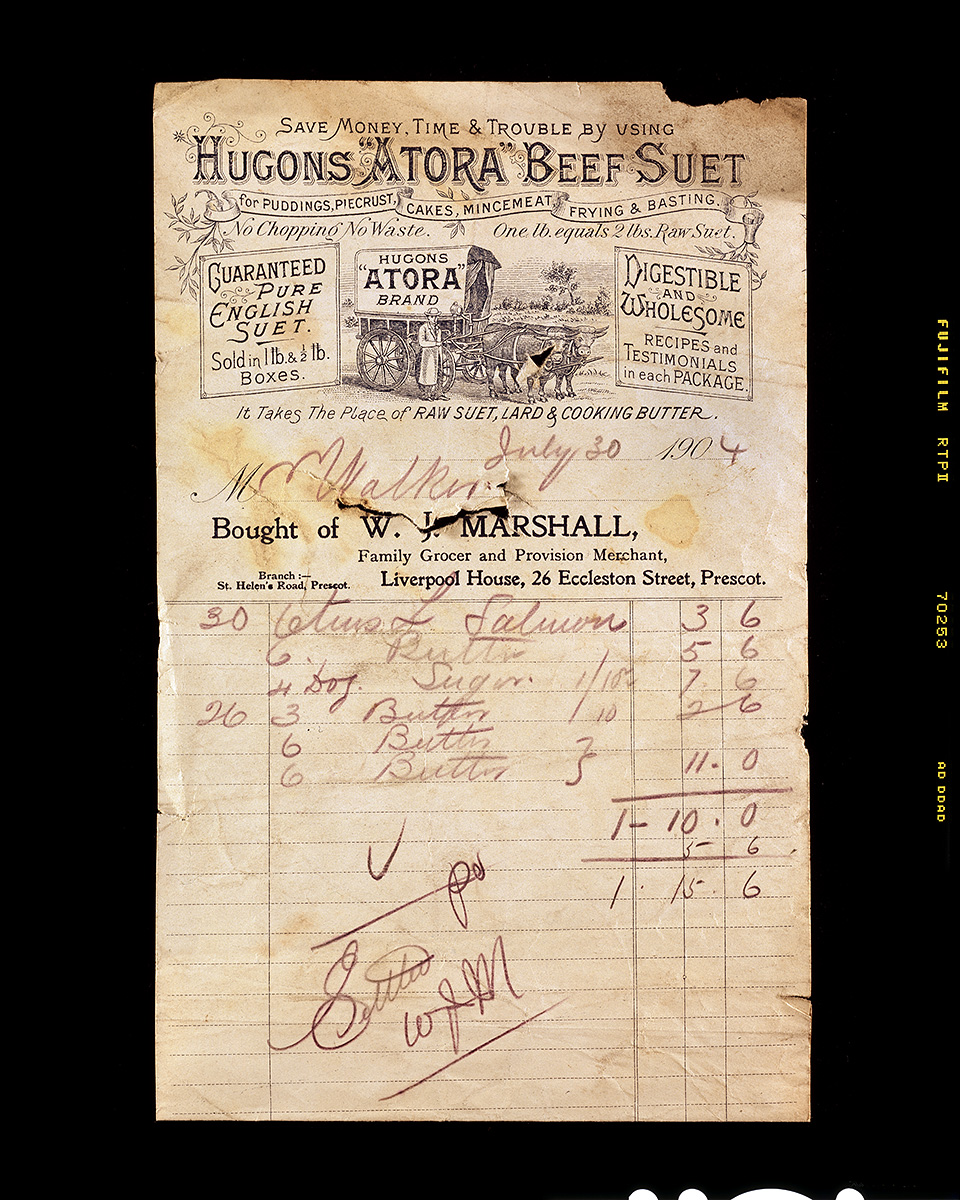 SAVE MONEY, TIME & TROUBLE BY USING
HUGONS "ATORA" BEEF SUET
for PUDDINGS, PIECRUST, CAKES, MINCEMEAT, FRYING & BASTING.
No Chopping No Waste. One lb. equals 2 lbs. Raw Suet.
GUARANTEED
PURE
ENGLISH
SUET.
Sold in 1 lb. & ½ lb.
Boxes.
HUGONS
"ATORA"
BRAND
DIGESTIBLE
AND
WHOLESOME
RECIPES and
TESTIMONIALS
in each PACKAGE.
It Takes The Place of RAW SUET, LARD & COOKING BUTTER.
July 30 1904
Mr Walker
Bought of W. J. MARSHALL,
Family Grocer and Provision Merchant,
Branch :—
St. Helen's Road, Prescot.
Liverpool House, 26 Eccleston Street, Prescot.
30 6 tins L Salmon 3 6
6 Butter 5 6
4 Doz. Sugar 1/10½ 7 6
26 3 Butter /10 2 6
6 Butter
6 Butter 11. 0
1 - 10. 0
5 6
1. 15. 6
pd
Settled
WJM
FUJIFILM RTPII
70253
AD DDAD